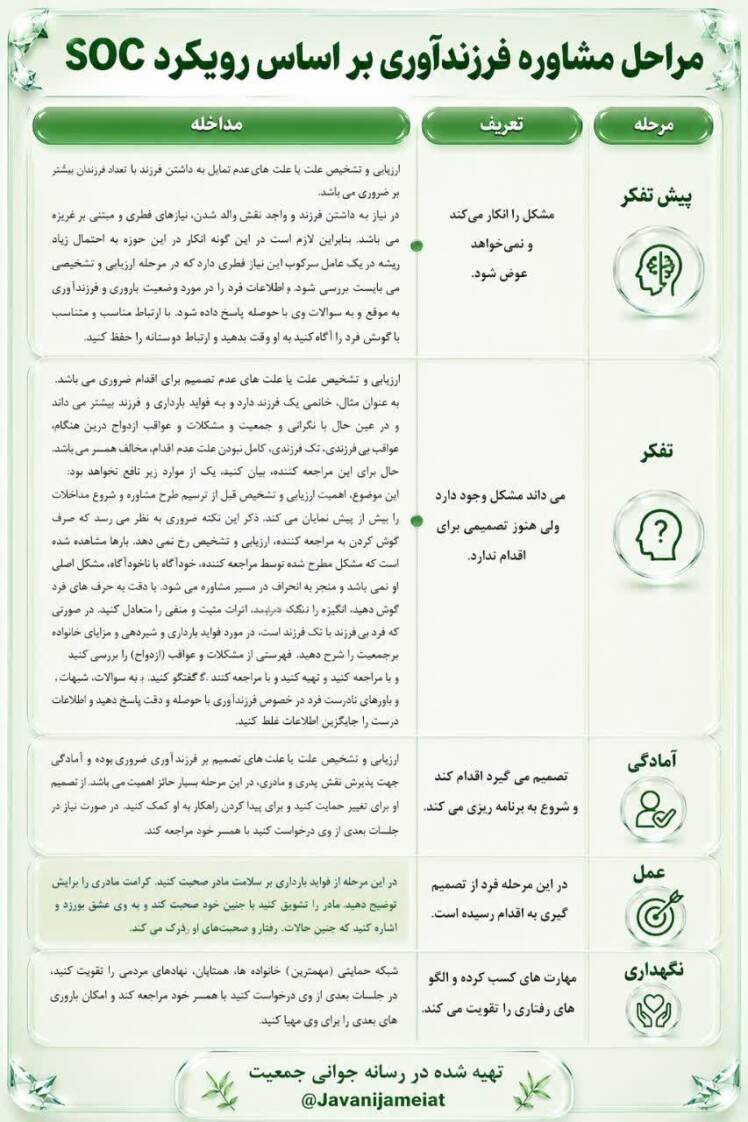 مراحل مشاوره فرزندآوری بر اساس رویکرد SOC
مرحله
تعریف
مداخله
پیش تفکر
مشکل را انکار می‌کند
و نمی‌خواهد
عوض شود.
ارزیابی و تشخیص علت یا علت های عدم تمایل به داشتن فرزند با تعداد فرزندان بیشتر
بر ضروری می باشد.
در نیاز به داشتن فرزند و واجد نقش والد شدن، نیازهای فطری و مبتنی بر غریزه
می باشد. بنابراین لازم است در این گونه انکار در این حوزه به احتمال زیاد
ریشه در یک عامل سرکوب این نیاز فطری دارد که در مرحله ارزیابی و تشخیصی
می بایست بررسی شود. و اطلاعات فرد را در مورد وضعیت باروری و فرزندآوری
به موقع و به سوالات وی با حوصله پاسخ داده شود. با ارتباط مناسب و متناسب
با گوش فرد را آگاه کنید به او وقت بدهید و ارتباط دوستانه را حفظ کنید.
تفکر
می داند مشکل وجود دارد
ولی هنوز تصمیمی برای
اقدام ندارد.
ارزیابی و تشخیص علت یا علت های عدم تصمیم برای اقدام ضروری می باشد.
به عنوان مثال، خانمی یک فرزند دارد و به فواید بارداری و فرزند بیشتر می داند
و در عین حال با نگرانی و جمعیت و مشکلات و عواقب ازدواج درین هنگام،
عواقب بی فرزندی، تک فرزندی، کامل نبودن علت عدم اقدام، مخالف همسر می باشد.
حال برای این مراجعه کننده، بیان کنید، یک از موارد زیر نافع نخواهد بود:
این موضوع، اهمیت ارزیابی و تشخیص قبل از ترسیم طرح مشاوره و شروع مداخلات
را بیش از پیش نمایان می کند. ذکر این نکته ضروری به نظر می رسد که صرف
گوش کردن به مراجعه کننده، ارزیابی و تشخیص رخ نمی دهد. بارها مشاهده شده
است که مشکل مطرح شده توسط مراجعه کننده، خودآگاه یا ناخودآگاه، مشکل اصلی
او نمی باشد و منجر به انحراف در مسیر مشاوره می شود. با دقت به حرف های فرد
گوش دهید، انگیزه را اثرات مثبت و منفی را متعادل کنید. در صورتی
که فرد بی فرزند یا تک فرزند است، در مورد فواید بارداری و شیردهی و مزایای خانواده
پرجمعیت را شرح دهید. فهرستی از مشکلات و عواقب (ازدواج) را بررسی کنید
و با مراجعه کنید و تهیه کنید و با مراجعه کنند گفتگو کنید. به سوالات، شبهات،
و باورهای نادرست فرد در خصوص فرزندآوری با حوصله و دقت پاسخ دهید و اطلاعات
درست را جایگزین اطلاعات غلط کنید.
آمادگی
تصمیم می گیرد اقدام کند
و شروع به برنامه ریزی می کند.
ارزیابی و تشخیص علت یا علت های تصمیم بر فرزند آوری ضروری بوده و آمادگی
جهت پذیرش نقش پدری و مادری، در این مرحله بسیار حائز اهمیت می باشد. از تصمیم
او برای تغییر حمایت کنید و برای پیدا کردن راهکار به او کمک کنید. در صورت نیاز در
جلسات بعدی از وی درخواست کنید با همسر خود مراجعه کند.
عمل
در این مرحله فرد از تصمیم
گیری به اقدام رسیده است.
در این مرحله از فواید بارداری بر سلامت مادر صحبت کنید. کرامت مادری را برایش
توضیح دهید. مادر را تشویق کنید با جنین خود صحبت کند و به وی عشق بورزد و
اشاره کنید که جنین حالات. رفتار و صحبت‌های او می کند.
نگهداری
مهارت های کسب کرده و الگو
های رفتاری را تقویت می کند.
شبکه حمایتی (مهمترین) خانواده ها، همتایان، نهادهای مردمی را تقویت کنید،
در جلسات بعدی از وی درخواست کنید با همسر خود مراجعه کند و امکان باروری
های بعدی را برای وی مهیا کنید.
تهیه شده در رسانه جوانی جمعیت
@Javanijameiat